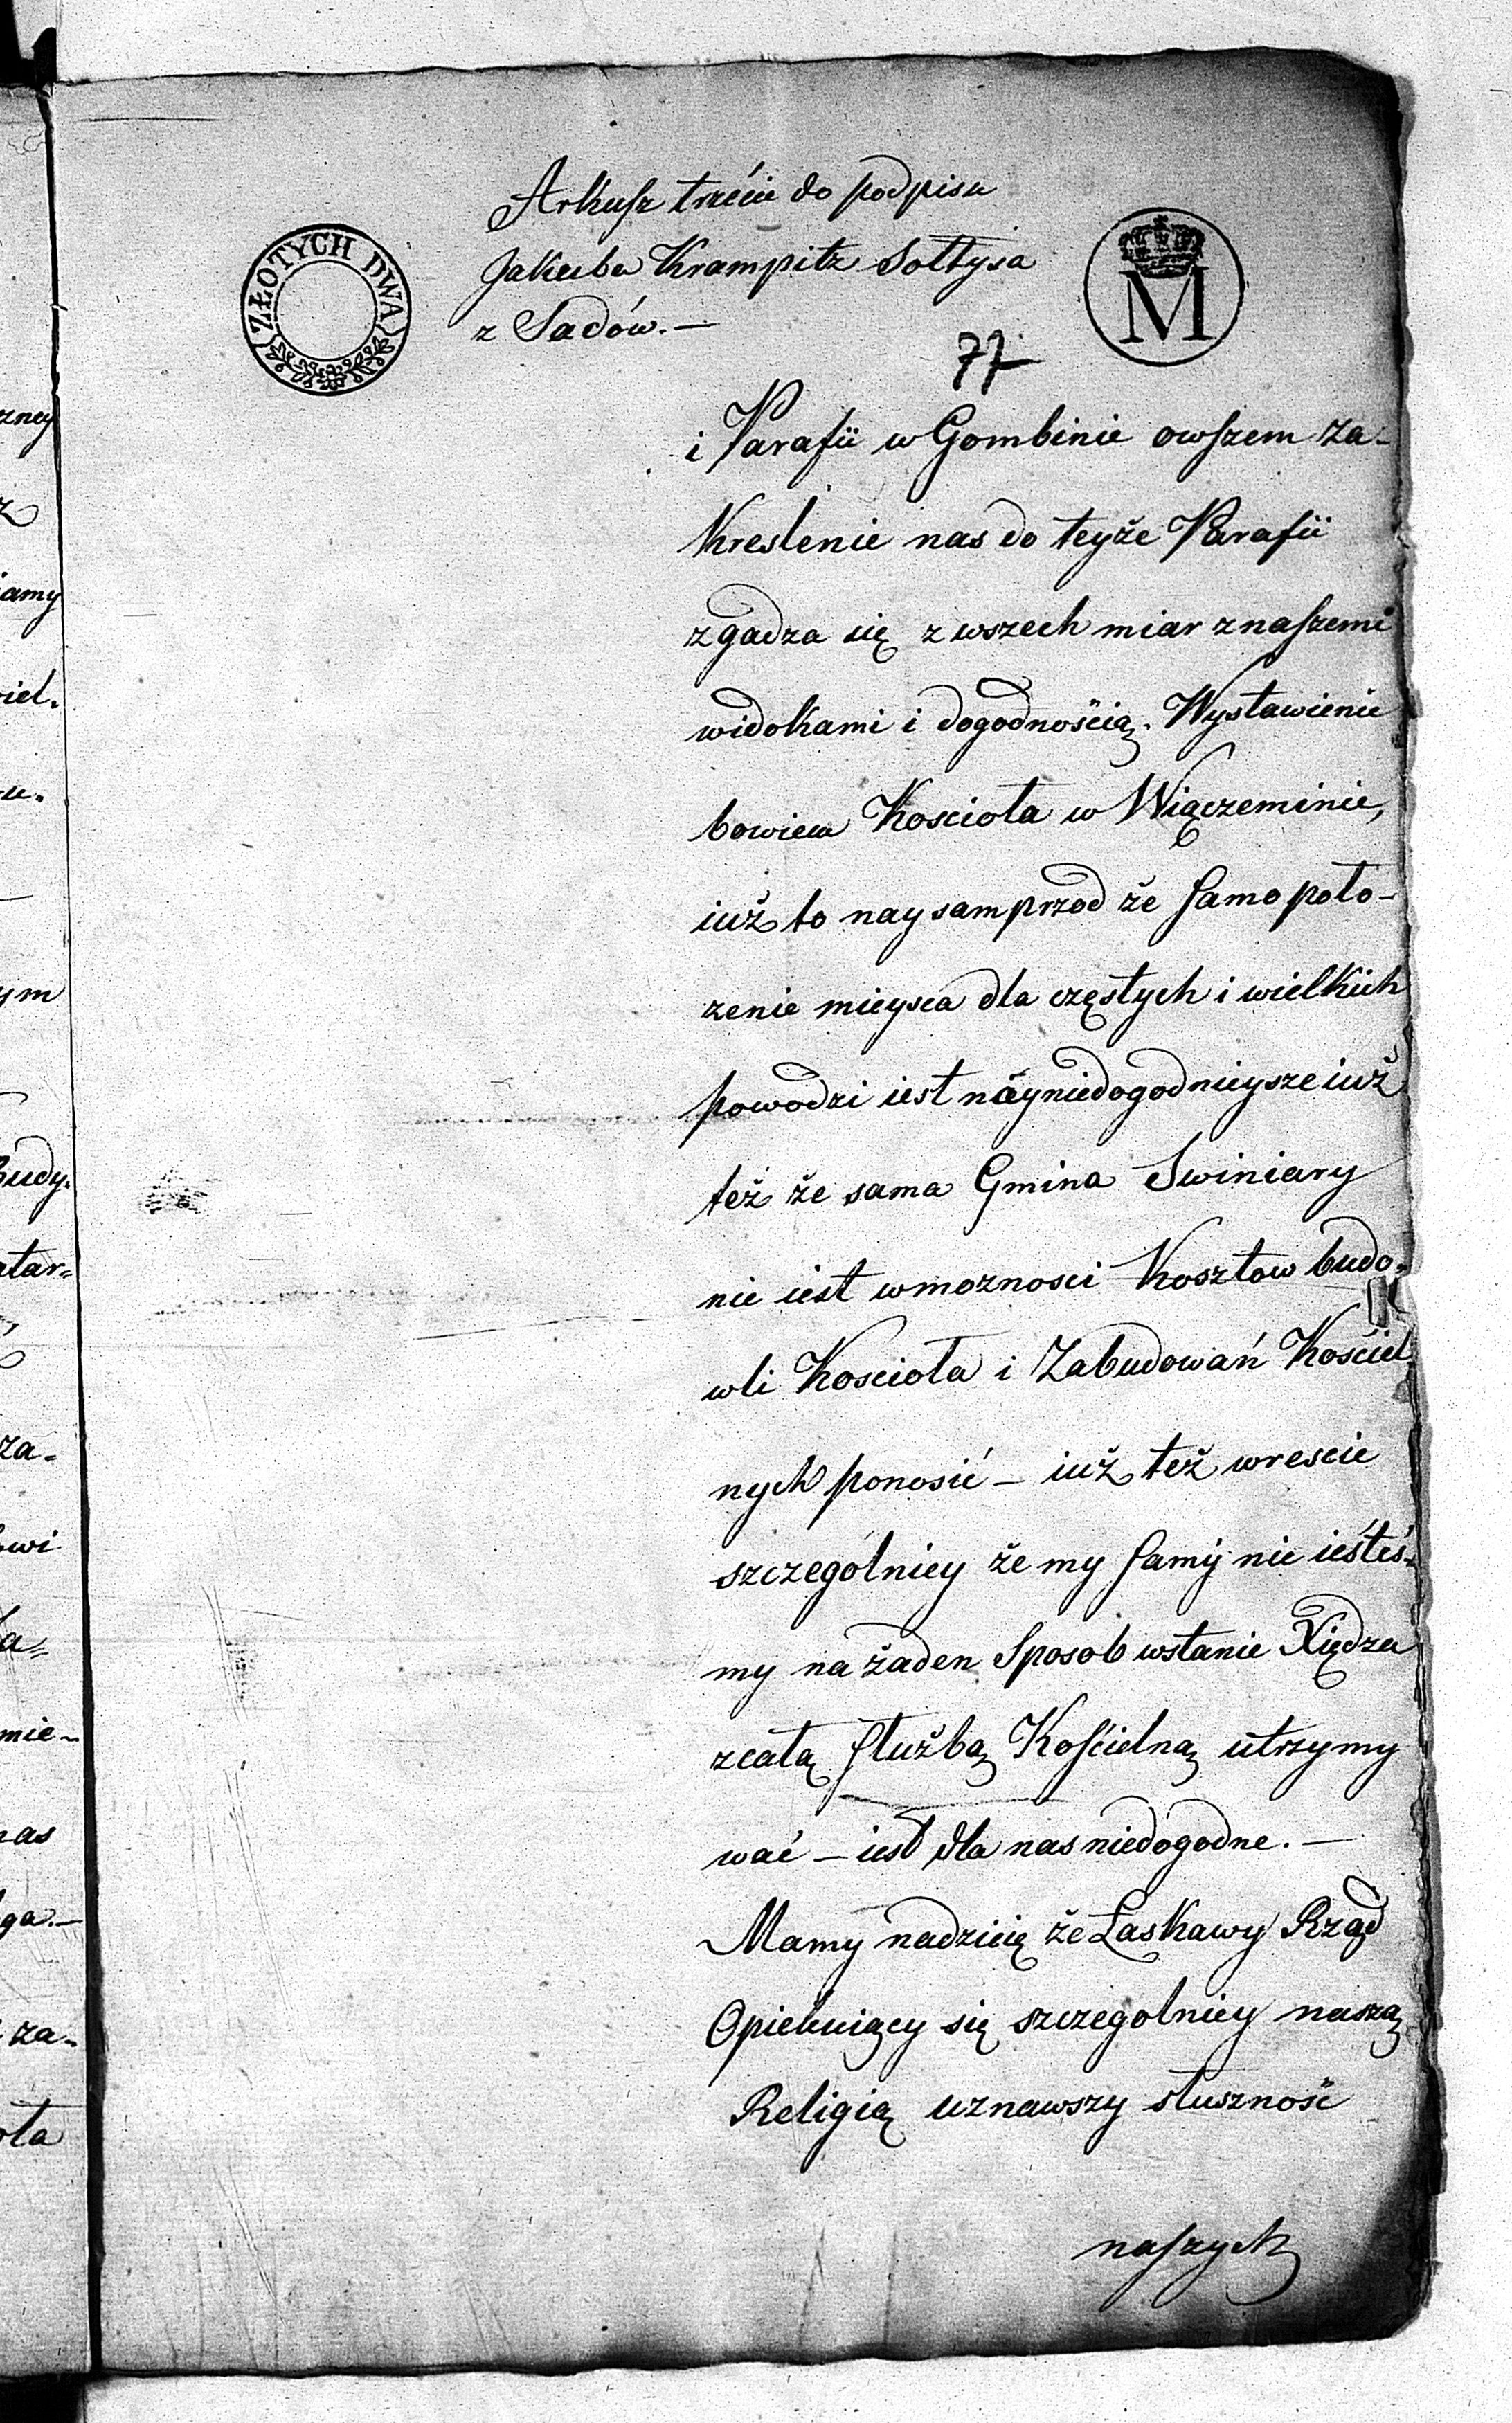 Arkusz trzéci do podpisu
Jakuba Krampitz Sołtysa
z Sadów. —
ZŁOTYCH DWA
M
77
i Parafii w Gombinie owszem za-
kreslenie nas do teyże Parafii
zgadza się z wszech miar z naszemi
widokami i dogodnością. Wystawienie
bowiem Koscioła w Wiączeminie,
iuż to nay samprzod że samo poło-
żenie mieysca dla częstych i wielkich
powodzi iest nayniedogodnieysze iuż
też że sama Gmina Swiniary
nie iest w moznosci Kosztow budo-
wli Kosciola i Zabudowań Kościel
nych ponosić — iuż też wrescie
szczególniey że my samÿ nie ieśteś-
my na żaden Sposob wstanie Xiędza
z całą służbą Kościelną utrzymy
wać — iest dla nas niedogodne. —
Mamy nadzieię że Laskawy Rząd
Opiekuiący się szczegolniey naszą
Religią uznawszy słuszność
naszych
zney
z
iamy
iel.
u.
ym
Budy.
atar=
za.
wi
a=
mie-
nas
ga. —
za-
oła